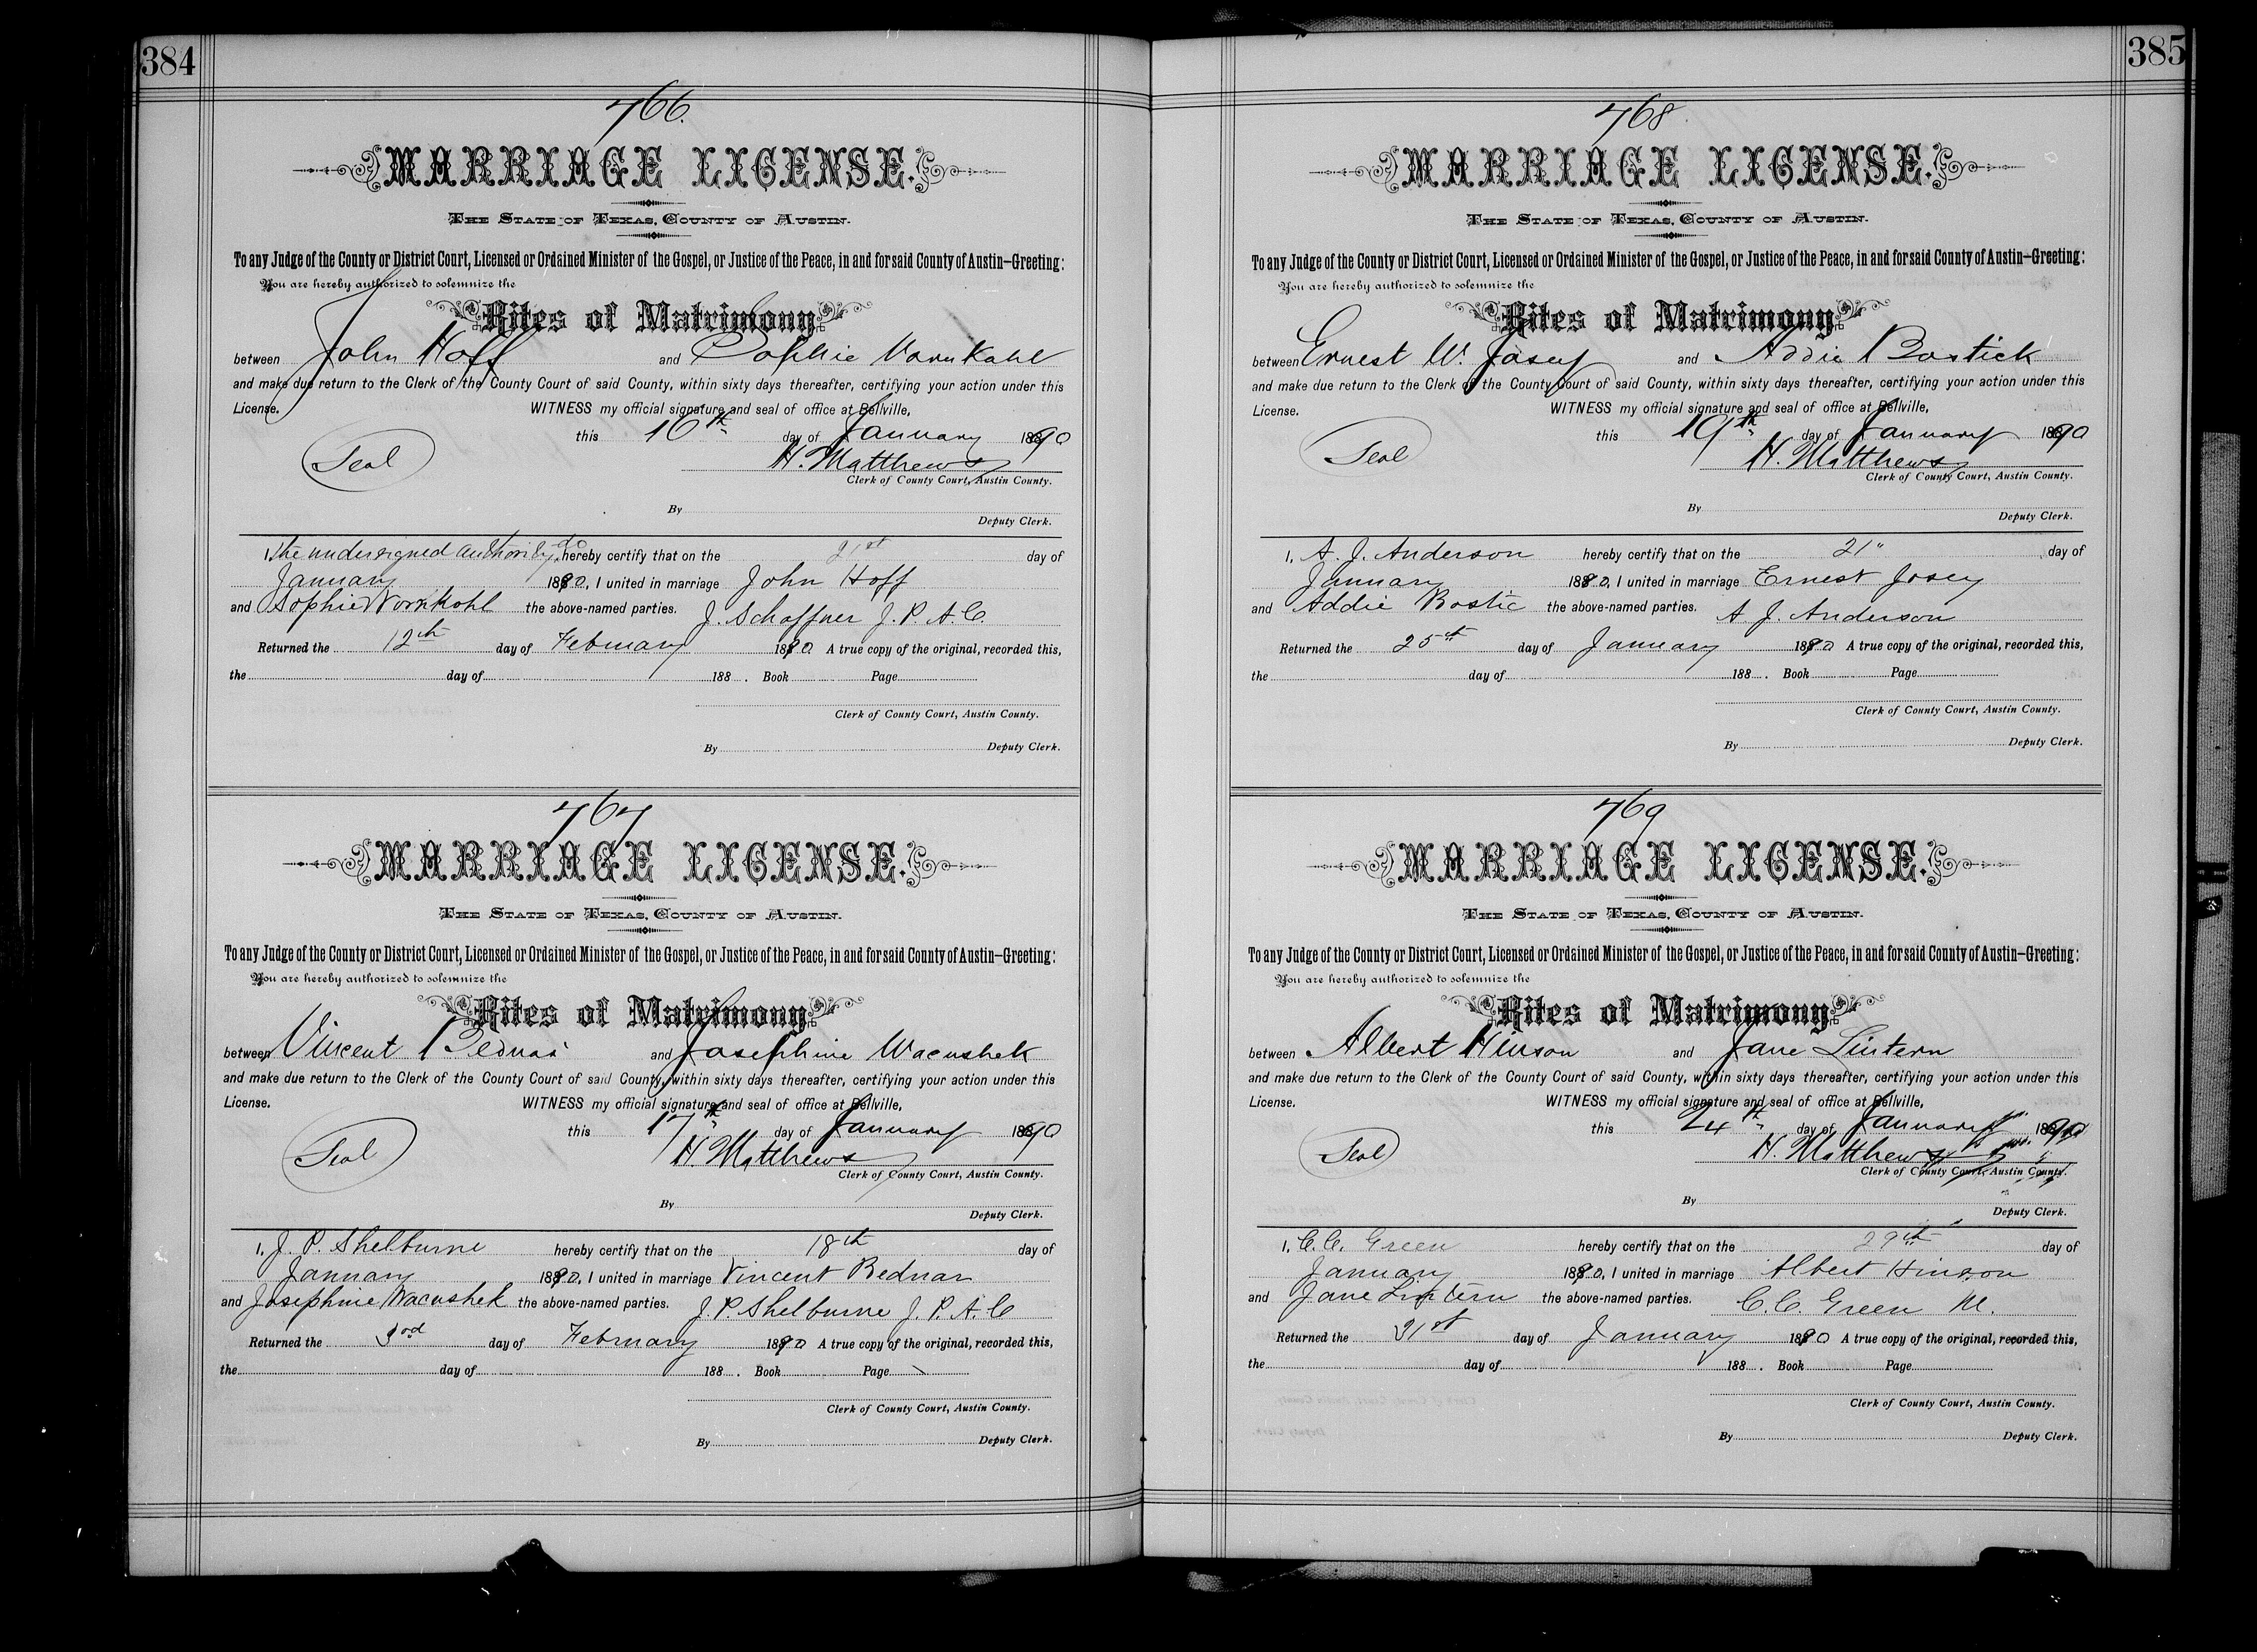 384
766.
MARRIAGE LICENSE.
THE STATE OF TEXAS, COUNTY OF AUSTIN.
To any Judge of the County or District Court, Licensed or Ordained Minister of the Gospel, or Justice of the Peace, in and for said County of Austin—Greeting:
You are hereby authorized to solemnize the
Rites of Matrimony
between John Hoff and Sophie Vornkahl
and make due return to the Clerk of the County Court of said County, within sixty days thereafter, certifying your action under this
License. WITNESS my official signature and seal of office at Bellville,
this 16th day of January 1890
Seal H. Matthews
Clerk of County Court, Austin County.
By
Deputy Clerk.
I, The undersigned authority do hereby certify that on the 21st day of
January 1890, I united in marriage John Hoff
and Sophie Vornkohl the above-named parties. J. Schaffner J. P. A. C.
Returned the 12th day of February 1890 A true copy of the original, recorded this,
the day of 188 . Book Page
Clerk of County Court, Austin County.
By Deputy Clerk.
767
MARRIAGE LICENSE.
THE STATE OF TEXAS, COUNTY OF AUSTIN.
To any Judge of the County or District Court, Licensed or Ordained Minister of the Gospel, or Justice of the Peace, in and for said County of Austin—Greeting:
You are hereby authorized to solemnize the
Rites of Matrimony
between Vincent Bednar and Josephine Wacushek
and make due return to the Clerk of the County Court of said County, within sixty days thereafter, certifying your action under this
License. WITNESS my official signature and seal of office at Bellville,
this 17th day of January 1890
Seal H. Matthews
Clerk of County Court, Austin County.
By
Deputy Clerk.
I, J. P. Shelburne hereby certify that on the 18th day of
January 1890, I united in marriage Vincent Bednar
and Josephine Wacushek the above-named parties. J. P. Shelburne J. P. A. C
Returned the 3rd day of February 1890 A true copy of the original, recorded this,
the day of 188 . Book Page
Clerk of County Court, Austin County.
By Deputy Clerk.
385
768
MARRIAGE LICENSE.
THE STATE OF TEXAS, COUNTY OF AUSTIN.
To any Judge of the County or District Court, Licensed or Ordained Minister of the Gospel, or Justice of the Peace, in and for said County of Austin—Greeting:
You are hereby authorized to solemnize the
Rites of Matrimony
between Ernest W. Josey and Addie Bostick
and make due return to the Clerk of the County Court of said County, within sixty days thereafter, certifying your action under this
License. WITNESS my official signature and seal of office at Bellville,
this 19th day of January 1890
Seal H. Matthews
Clerk of County Court, Austin County.
By
Deputy Clerk.
I, A. J. Anderson hereby certify that on the 21" day of
January 1890, I united in marriage Ernest Josey
and Addie Bostic the above-named parties. A J. Anderson
Returned the 25th day of January 1890 A true copy of the original, recorded this,
the day of 188 . Book Page
Clerk of County Court, Austin County.
By Deputy Clerk.
769
MARRIAGE LICENSE.
THE STATE OF TEXAS, COUNTY OF AUSTIN.
To any Judge of the County or District Court, Licensed or Ordained Minister of the Gospel, or Justice of the Peace, in and for said County of Austin—Greeting:
You are hereby authorized to solemnize the
Rites of Matrimony
between Albert Hinson and Jane Lintern
and make due return to the Clerk of the County Court of said County, within sixty days thereafter, certifying your action under this
License. WITNESS my official signature and seal of office at Bellville,
this 24th day of January 1890
Seal H. Matthews
Clerk of County Court, Austin County.
By
Deputy Clerk.
I, C. C. Green hereby certify that on the 29th day of
January 1890, I united in marriage Albert Hinson
and Jane Lintern the above-named parties. C. C. Green M.
Returned the 31st day of January 1890 A true copy of the original, recorded this,
the day of 188 . Book Page
Clerk of County Court, Austin County.
By Deputy Clerk.